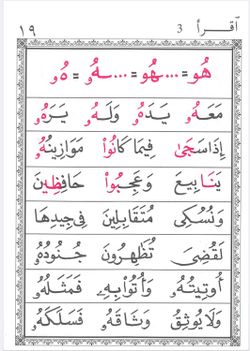 أقرأ 3 ١٩
هُو = ...هُو = ...ـهُو = هُو
مَعَهُۥ يَدَهُۥ وَلَهُۥ يَرَهُۥ
إِذَا سَجَىٰ فِيمَا كَانُوا۟ مَوَازِينُهُۥ
يَنَابِيعَ وَعَجِبُوا۟ حَافِظِينَ
وَنُسُكِى مُتَقَابِلِينَ فِى جِيدِهَا
لَقُضِىَ تُظْهِرُونَ جُنُودُهُۥ
أُوتِيتُهُۥ وَأُتُوا۟ بِهِۦ فَمَثَلُهُۥ
وَلَا يُوثِقُ وَثَاقَهُۥ فَسَلَكَهُۥ